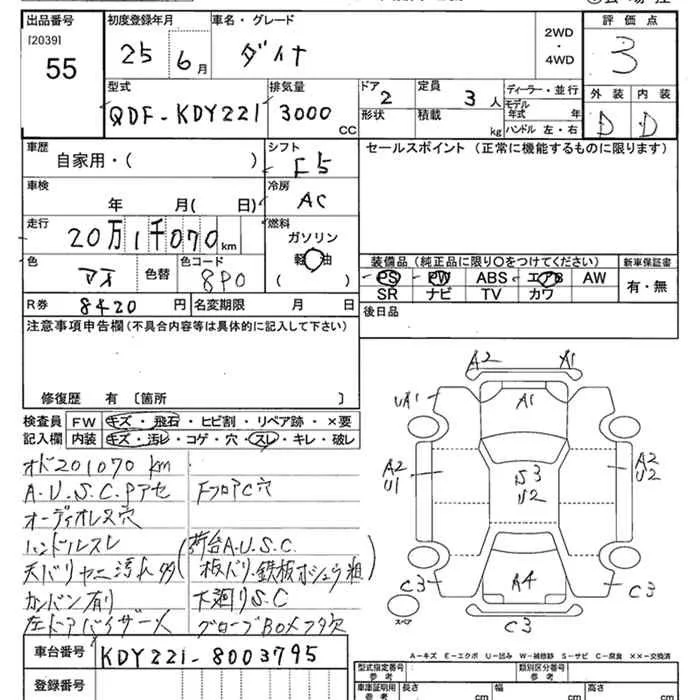 出品番号
[2039]
55
初度登録年月
25 6月
車名・グレード
ダイナ
2WD
・
4WD
評価点
3
外装 内装
D D
型式
QDF-KDY221
排気量
3000
CC
ドア
2
形状
定員
3 人
積載
kg
ディーラー・並行
モデル
年式 年
ハンドル 左・右
車歴
自家用・( )
シフト
F5
セールスポイント (正常に機能するものに限ります)
車検
年 月( 日)
冷房
AC
走行
20万1千070km
燃料
ガソリン
軽油
( )
色
アオ
色替
色コード
8P0
装備品 (純正品に限り〇をつけてください)
新車保証書
PS PW ABS エアB AW
SR ナビ TV カワ
有・無
R券 8420 円
名変期限 月 日
後日品
注意事項申告欄 (不具合内容等は具体的に記入して下さい)
修復歴 有 〔箇所 〕
検査員
記入欄
FW キズ・飛石・ヒビ割・リペア跡・×要
内装 キズ・汚レ・コゲ・穴・スレ・キレ・破レ
オド201070km
A.U.S.C.Pアセ FフロアC穴
オーディオレス穴
ハンドルスレ
荷台A.U.S.C.
天バリヤニ汚れ多
板バリ、鉄板ホシュウ粗
カンバン有り 下廻りS.C
左ドアバイザー欠
グローブBOXフタ欠
A2 A1
UA1 A1
A2
U1
S3
U2
A2
U2
A4
C3 C3
C3
スペア
A-キズ E-エクボ U-凹み W-補修跡 S-サビ C-腐食 ××-交換済
車台番号
KDY221-8003795
登録番号
型式指定番号
参考
類別区分番号
参考
車庫証明用
参考
長さ
cm
幅
cm
高さ
cm